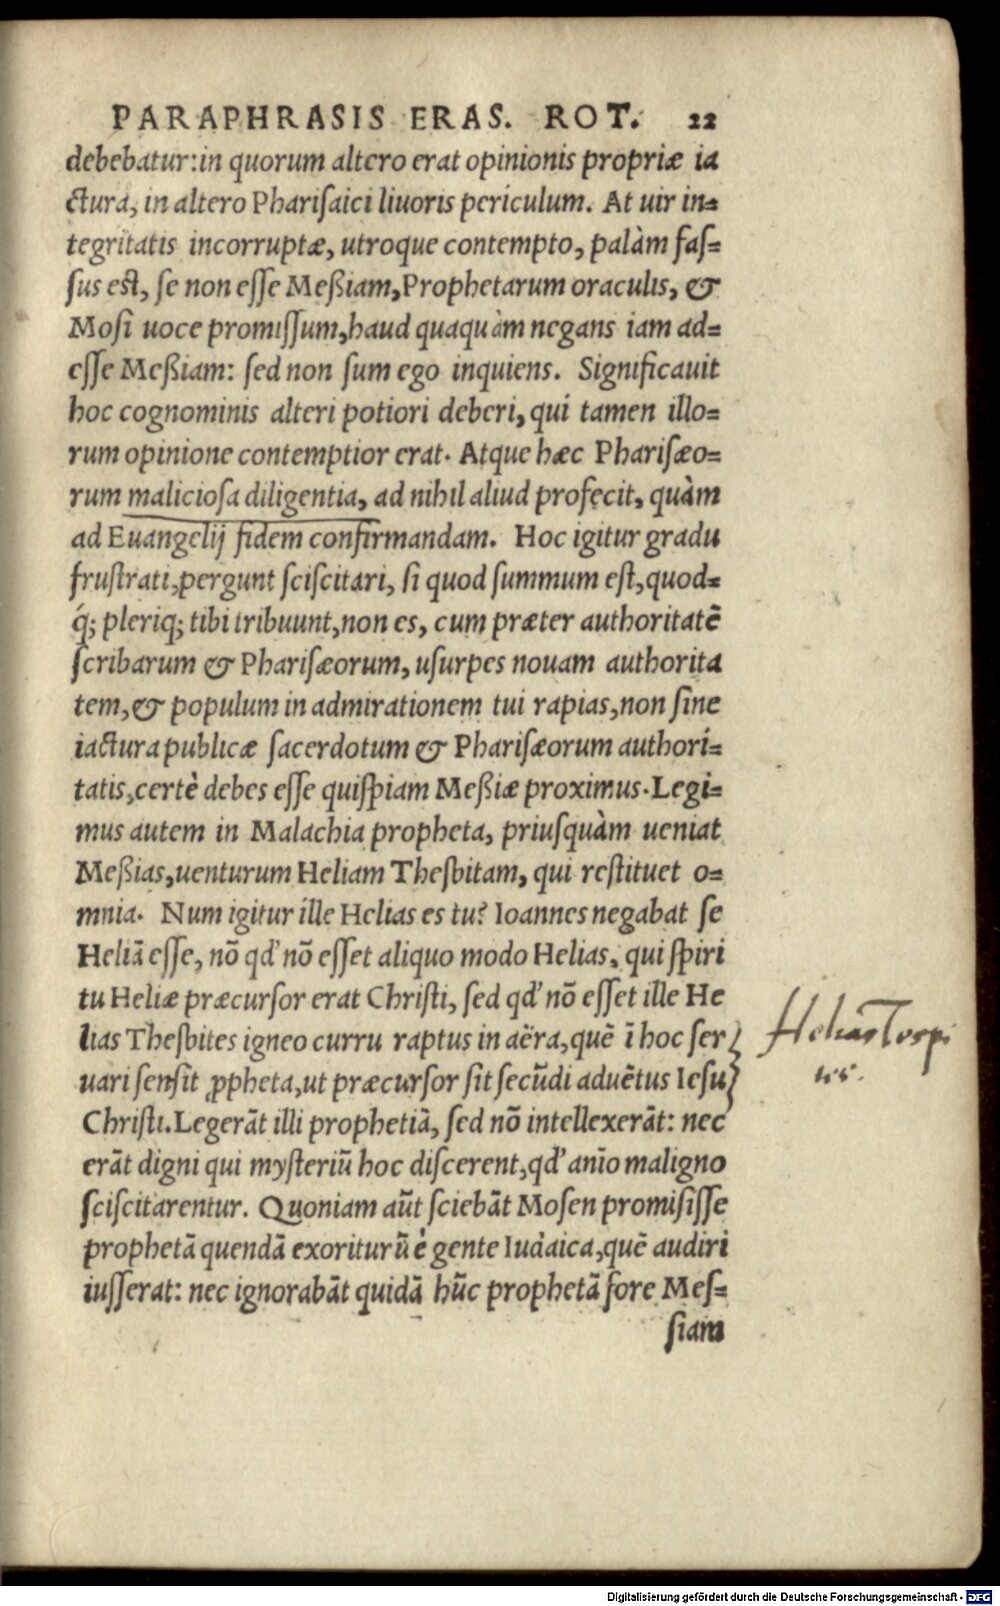 PARAPHRASIS ERAS. ROT. 22
debebatur: in quorum altero erat opinionis propriæ ia
ctura, in altero Phariſaici liuoris periculum. At uir in=
tegritatis incorruptæ, utroque contempto, palàm faſ=
ſus eſt, ſe non eſſe Meßiam, Prophetarum oraculis, &
Moſi uoce promiſſum, haud quaquàm negans iam ad=
eſſe Meßiam: ſed non ſum ego inquiens. Significauit
hoc cognominis alteri potiori deberi, qui tamen illo=
rum opinione contemptior erat. Atque hæc Phariſæo=
rum malicioſa diligentia, ad nihil aliud profecit, quàm
ad Euangelij fidem confirmandam. Hoc igitur gradu
fruſtrati, pergunt ſciſcitari, ſi quod ſummum eſt, quod=
q́; pleriq; tibi tribuunt, non es, cum præter authoritatē
ſcribarum & Phariſæorum, uſurpes nouam authorita
tem, & populum in admirationem tui rapias, non ſine
iactura publicæ ſacerdotum & Phariſæorum authori=
tatis, certè debes eſſe quiſpiam Meßiæ proximus. Legi=
mus autem in Malachia propheta, priuſquàm ueniat
Meßias, uenturum Heliam Theſbitam, qui reſtituet o=
mnia. Num igitur ille Helias es tu? Ioannes negabat ſe
Heliā eſſe, nō qđ nō eſſet aliquo modo Helias, qui ſpiri
tu Heliæ præcurſor erat Chriſti, ſed qđ nō eſſet ille He
lias Theſbites igneo curru raptus in aëra, quē ī hoc ſer
uari ſenſit ꝓpheta, ut præcurſor ſit ſecūdi aduētus Ieſu
Chriſti. Legerāt illi prophetiā, ſed nō intellexerāt: nec
erāt digni qui myſteriū hoc diſcerent, qđ anīo maligno
ſciſcitarentur. Quoniam aūt ſciebāt Moſen promiſiſſe
prophetā quendā exoriturū è gente Iudaica, quē audiri
iuſſerat: nec ignorabāt quidā hūc prophetā fore Meſ=
ſiam
Helias
Digitalisierung gefördert durch die Deutsche Forschungsgemeinschaft - DFG